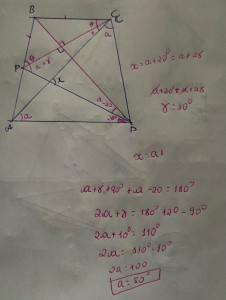 B
C
θ
a
P
θ
a+γ
x
a-20
A
a
D
x = a+20° = a+2γ
a+20°=a+2γ
γ = 10°
x = a+
a+γ+90°+a-20=180°
2a+γ = 180°+20°-90°
2a+10° = 110°
2a = 110°-10°
2a = 100
a = 50°